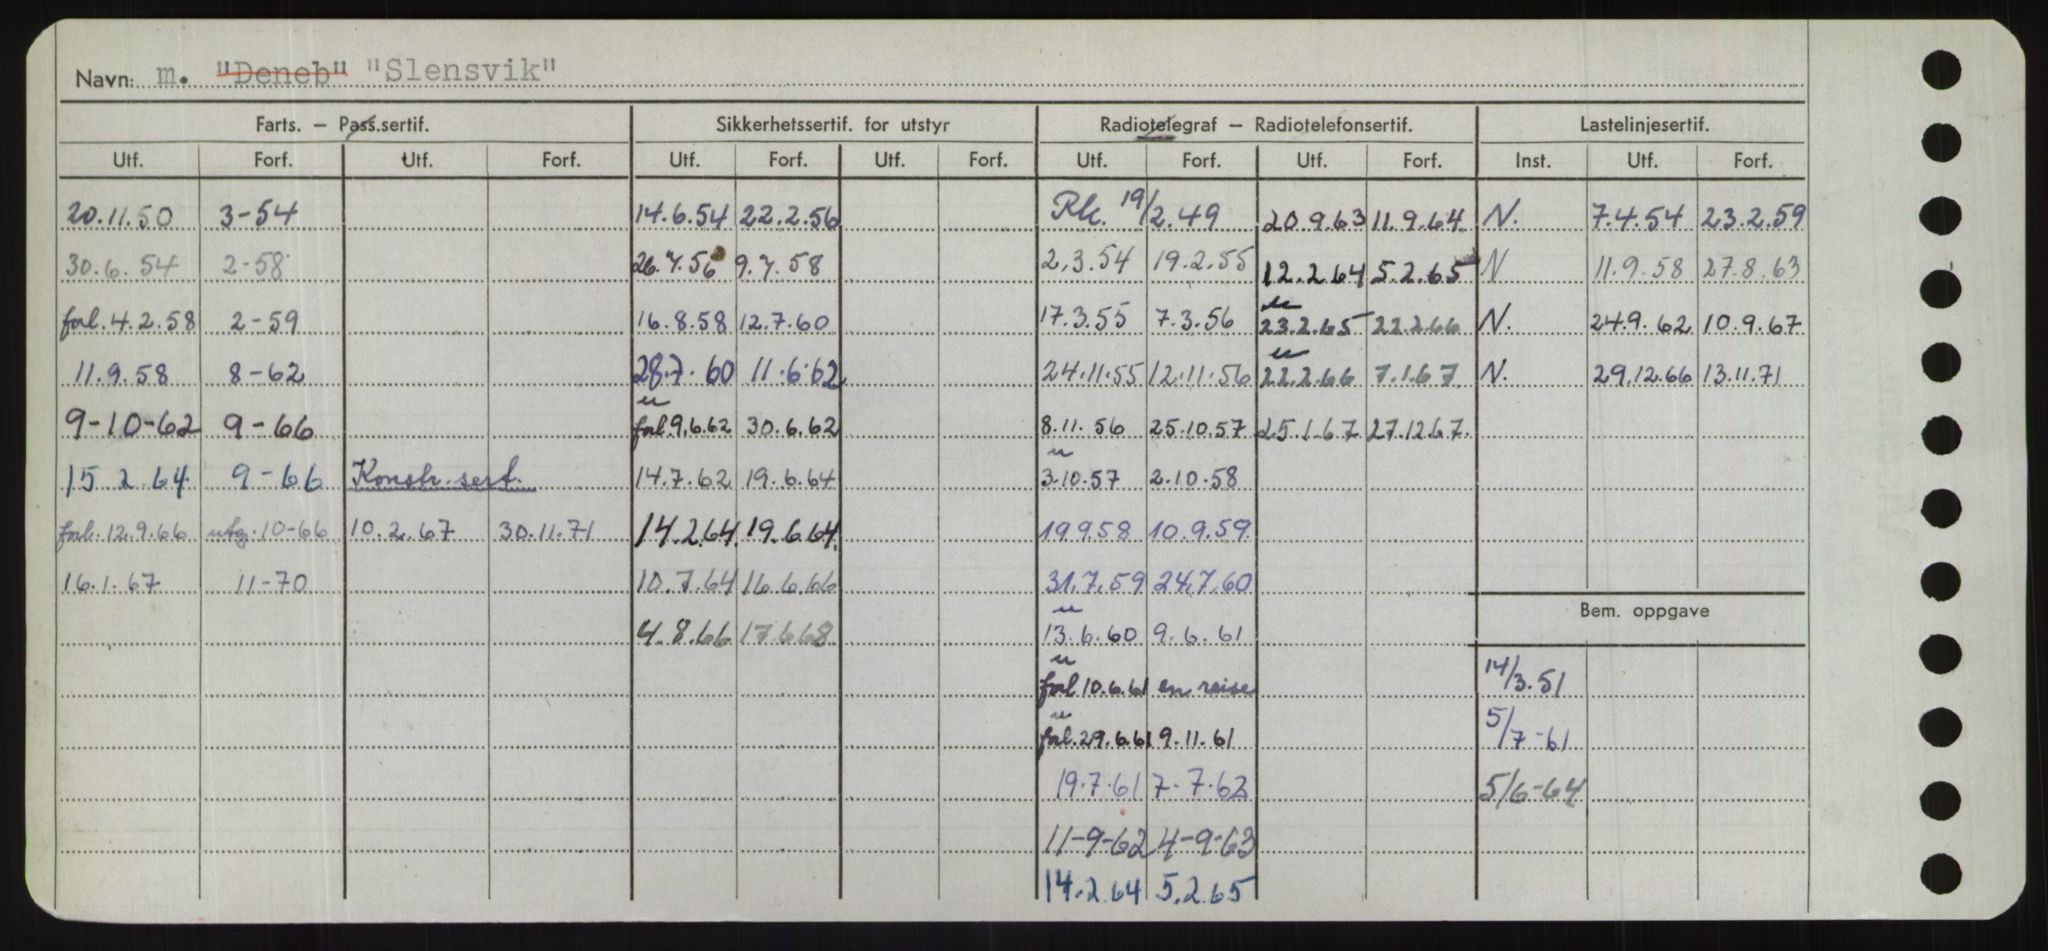 Navn: m. "Deneb" "Slensvik"
Farts. – Pass.sertif. Sikkerhetssertif. for utstyr Radiotelegraf – Radiotelefonsertif. Lastelinjesertif.
Utf. Forf. Utf. Forf. Utf. Forf. Utf. Forf. Utf. Forf. Utf. Forf. Inst. Utf. Forf.
20.11.50 3-54 14.6.54 22.2.56 Rk. 19/2.49 20.9.63 11.9.64 N. 7.4.54 23.2.59
30.6.54 2-58 26.7.56 9.7.58 2.3.54 19.2.55 12.2.64 5.2.65 N 11.9.58 27.8.63
forl. 4.2.58 2-59 16.8.58 12.7.60 17.3.55 7.3.56 u 23.2.65 22.2.66 N. 24.9.62 10.9.67
11.9.58 8-62 28.7.60 11.6.62 24.11.55 12.11.56 u 22.2.66 7.1.67 N. 29.12.66 13.11.71
9-10-62 9-66 u forl. 9.6.62 30.6.62 8.11.56 25.10.57 25.1.67 27.12.67.
15.2.64 9-66 Konstr. sert. 14.7.62 19.6.64 u 3.10.57 2.10.58
forl. 12.9.66 utg. 10-66 10.2.67 30.11.71 14.2.64 19.6.64 19.9.58 10.9.59
16.1.67 11-70 10.7.64 16.6.66 31.7.59 24.7.60
Bem. oppgave
4.8.66 17.6.68 u 13.6.60 9.6.61
u forl. 10.6.61 en reise 14/3.51
u forl. 29.6.61 9.11.61 5/7-61
19.7.61 7.7.62 5/6-64
11-9-62 4-9-63
14.2.64 5.2.65